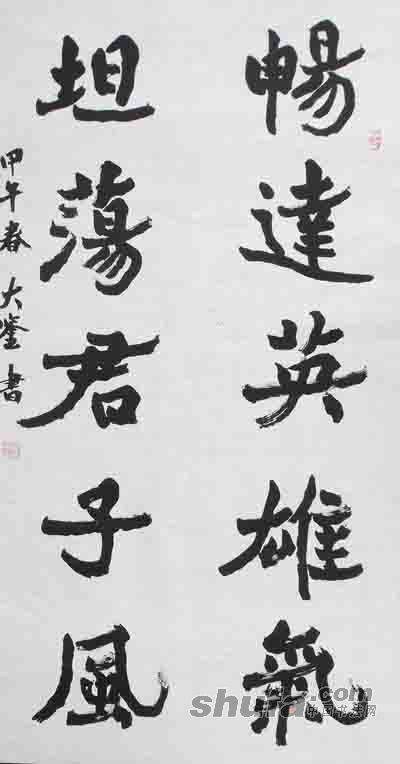 暢達英雄氣
坦蕩君子風
甲午春 大鋆書
shufa.com
中国书法网